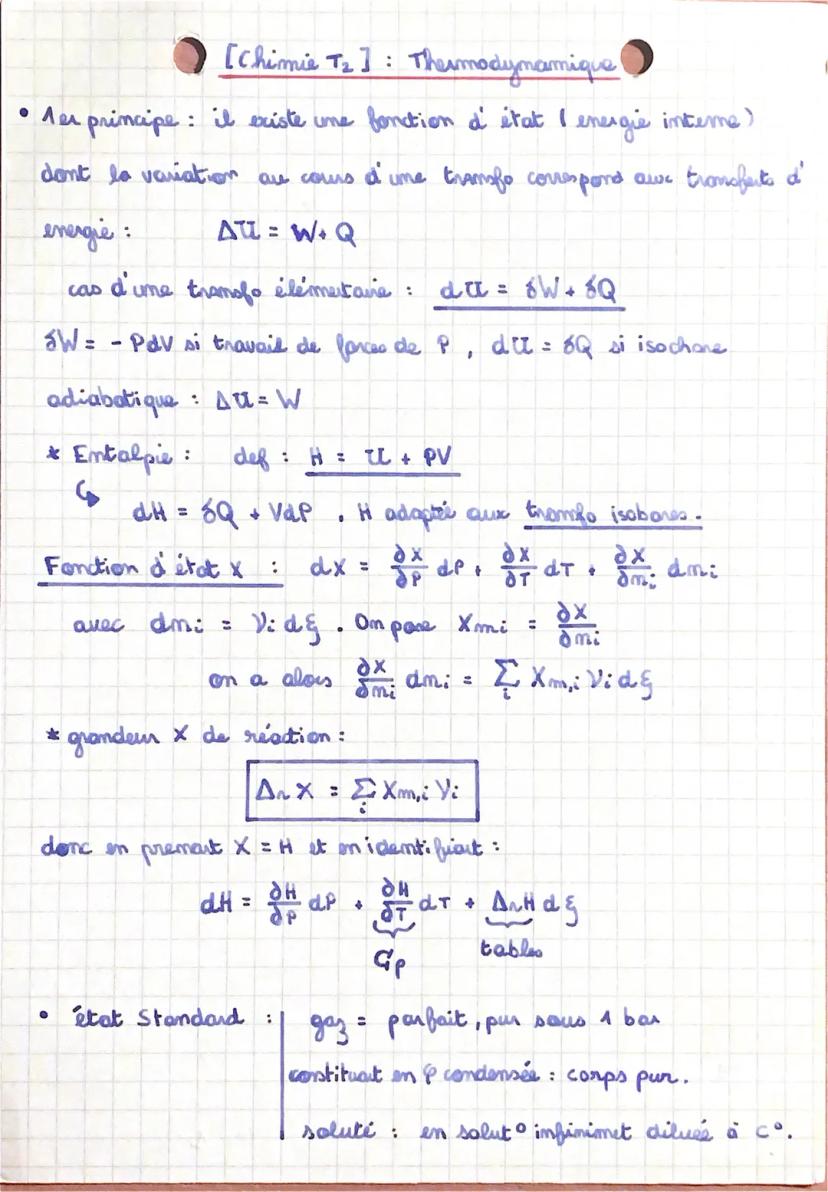 [Chimie T2] : Thermodynamique
• 1er principe : il existe une fonction d'état (energie interne)
dont la variation au cours d'une transfo correspond aux transferts d'
energie : ΔU = W + Q
cas d'une transfo élémentaire : dU = δW + δQ
δW = - PdV si travail de forces de P , dU = δQ si isochore
adiabatique : ΔU = W
* Entalpie : def : H = U + PV
↳ dH = δQ + VdP . H adaptée aux transfo isobares.
Fonction d'état X : dX = ∂X/∂P dP + ∂X/∂T dT + ∂X/∂ni dni
avec dni = νi dξ . On pose Xmi = ∂X/∂ni
on a alors ∂X/∂ni dni = Σi Xm,i νi dξ
* grandeur X de réaction :
ΔrX = Σi Xm,i νi
donc en prenant X = H et en identifiant :
dH = ∂H/∂P dP + ∂H/∂T dT + ΔrH dξ
Cp tables
• état Standard : gaz = parfait, pur sous 1 bar
constituant en φ condensée : corps pur.
soluté : en solut° infinimet diluée à C°.